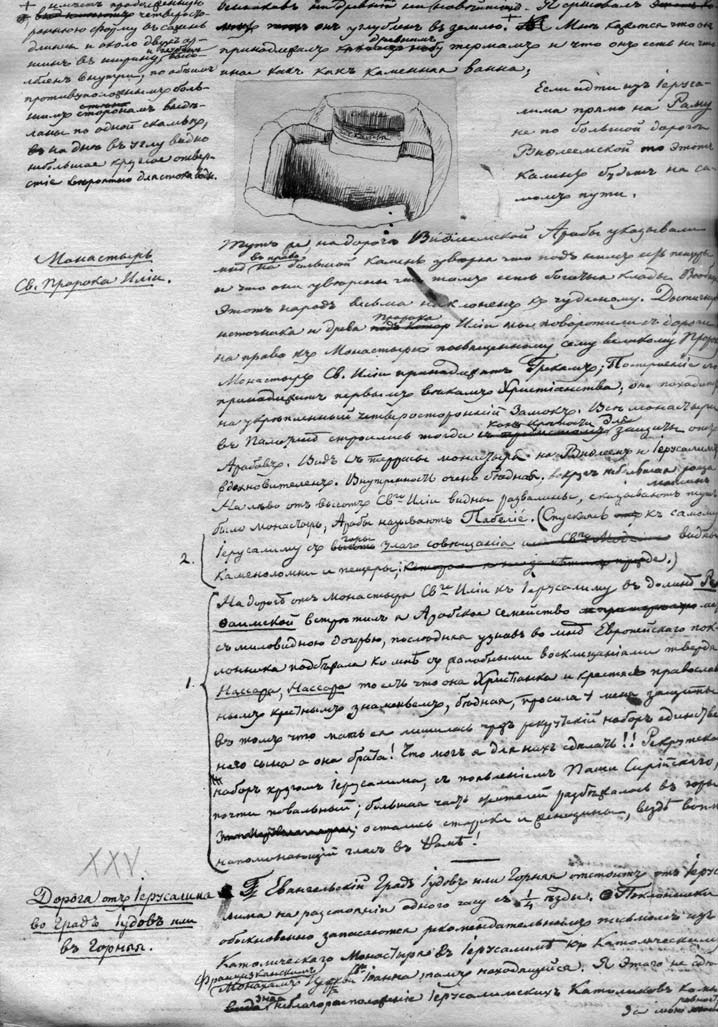 + имѣетъ продолговатую
четверосто-
роннюю форму въ сажень
длины и около двухъ ар-
шинъ въ ширину,
внутри, по обѣимъ
противуположнымъ боль-
шимъ сторонамъ видѣ-
ланы по одной скамьѣ,
а на днѣ въ углу видно
небольшое круглое отвер-
стіе вѣроятно для стока воды.
онъ углубленъ въ землю. Мнѣ кажется что онъ
принадлежалъ древнимъ термамъ и что онъ есть ни что
иное какъ каменная ванна;
Если идти изъ Іеруса-
лима прямо на Раму
не по большой дорогѣ
Виѳлеемской то этотъ
камень будетъ на са-
момъ пути.
Монастырь
Св. Пророка Иліи.
Тутъ же на дорогѣ Виѳлеемской Арабы указывали
мнѣ на большой камень увѣряя что подъ нимъ есть пещера
и что они увѣрены что тамъ есть богатые клады. Вообще
Этотъ народъ весьма наклоненъ къ чудесному. Достигнувъ
источника и древа Пророка Иліи мы поворотили съ дороги
на право къ Монастырю посвященному сему великому Пророку
Монастырь Св. Иліи принадлежитъ Грекамъ; Построеніе его
принадлежитъ первымъ вѣкамъ Христіанства; онъ походитъ
на укрѣпленный четверосторонній Замокъ. Всѣ монастыри
въ Палестинѣ строились тогда какъ крѣпости для защиты отъ
Арабовъ. Видъ съ террасы монастыря на Виѳлеемъ и Іерусалимъ
вдохновителенъ. Внутренность очень бѣдная. вокругъ небольшая роща маслинъ
На лѣво отъ высотъ Св. Иліи видны развалины, сказываютъ тутъ
былъ монастырь, Арабы называютъ (Спускаясь къ самому
2. Іерусалиму съ горы злаго совѣщанія видны
каменоломни и пещеры; )
На дорогѣ отъ монастыря Св. Иліи къ Іерусалиму въ долинѣ Ре-
фаимской встрѣтилъ я Арабское семейство
съ миловидною дочерью, послѣдняя узнавъ во мнѣ Европейскаго пок-
лонника подбѣжала ко мнѣ съ жалобными восклицаніями твердя
1. Нассара, Нассара то есть что она Христіанка и крестясь православ-
нымъ крестнымъ знаменьемъ, бѣдная, просила у меня защиты
въ томъ что мать ея лишилась чрезъ рекрутскій наборъ единствен-
наго сына а она брата! Что могъ я для нихъ сдѣлать!! Рекрутской
наборъ кругомъ Іерусалима, съ появленіемъ Паши Сирійскаго,
почти повальный; большая часть жителей разбѣжалась въ горы
остались старики и женщины, вездѣ вопль
напоминающій гласъ въ Рамѣ!
XXV.
Дорога отъ Іерусалима
во Градъ Іудовъ или
въ Горняя.
Евангельскій Градъ Іудовъ или Горняя отстоитъ отъ Іеруса-
лима на разстояніи одного часу съ 1/4 ѣзды. Поклонники
обыкновенно запасаются рекомендательнымъ письмомъ изъ
Католическаго Монастыря въ Іерусалимѣ къ Католическимъ
Францисканскимъ
Монахамъ Церкви Св. Іоанна, тамъ находящейся. Я этого не сдѣ-
зная неблагорасположеніе Іерусалимскихъ Католиковъ ко мнѣ
за мою